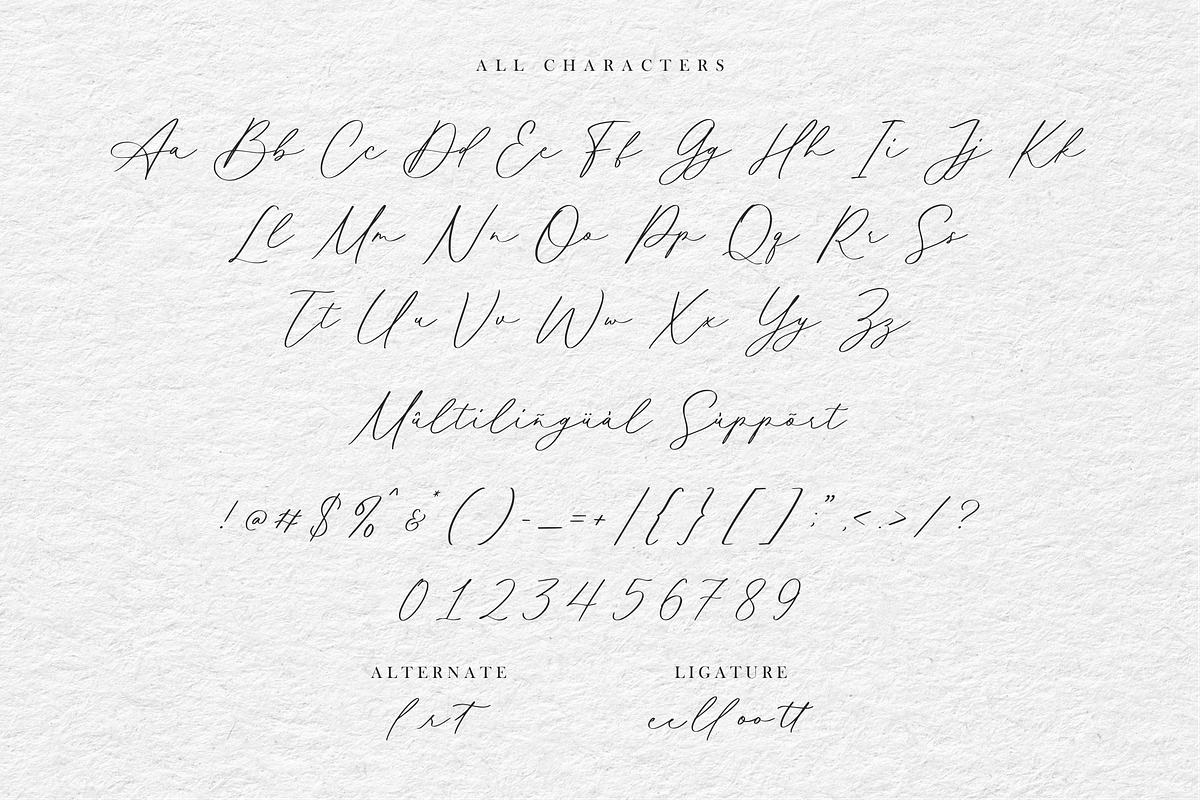 ALL CHARACTERS
Aa Bb Cc Dd Ee Ff Gg Hh Ii Jj Kk
Ll Mm Nn Oo Pp Qq Rr Ss
Tt Uu Vv Ww Xx Yy Zz
Mûltiliñgüàl Sùppõrt
!@#$%^&*()-_=+/{}[]:;”,<.>/?
0123456789
ALTERNATE LIGATURE
l r t ee ll oo tt